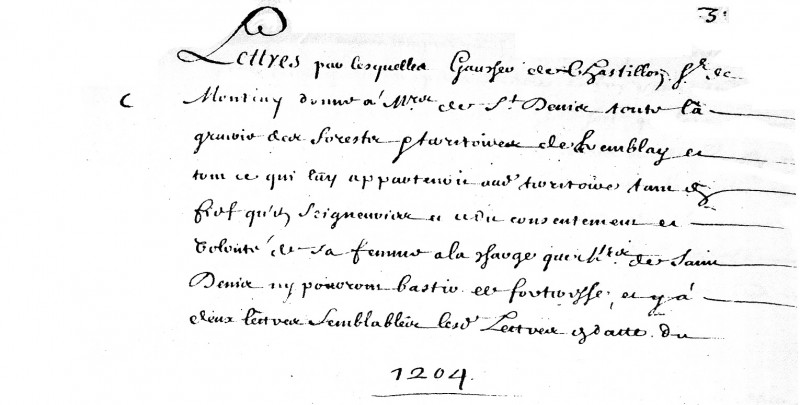 3.
Lettres par lesquelles Gaucher de Chastillon Sr. de
C Montiny donne a Mrs. de St. Denis toute la
gruirie des forests et territoires de Tremblay et
tout ce qui luy appartenoit aud. territoire tant en
fief qu'en Seigneuries et ce du consentement et
volonté de sa femme a la charge que Mrs. de Saint
Denis ny pouront bastir de fortresse, et y a
deux lettres semblables lesd. Lettres en datte du
1204.